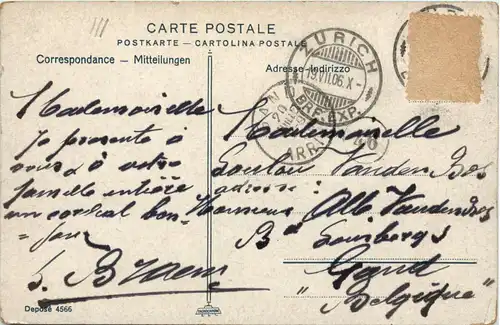 CARTE POSTALE
POSTKARTE - CARTOLINA POSTALE
Correspondance - Mitteilungen
Adresse-Indirizzo
ZURICH
19.VII.06.X-
BRF.EXP.
GAN
ARR
Mademoiselle
Je présente à
vous à votre
famille entière
un cordial bon-
jour
S. Braem
Mademoiselle
Loulou Vanden Bos
adresse:
Monsieur Alb. Vandenbos
Bd Lousbergs
Gand
"Belgique"
Deposé 4566